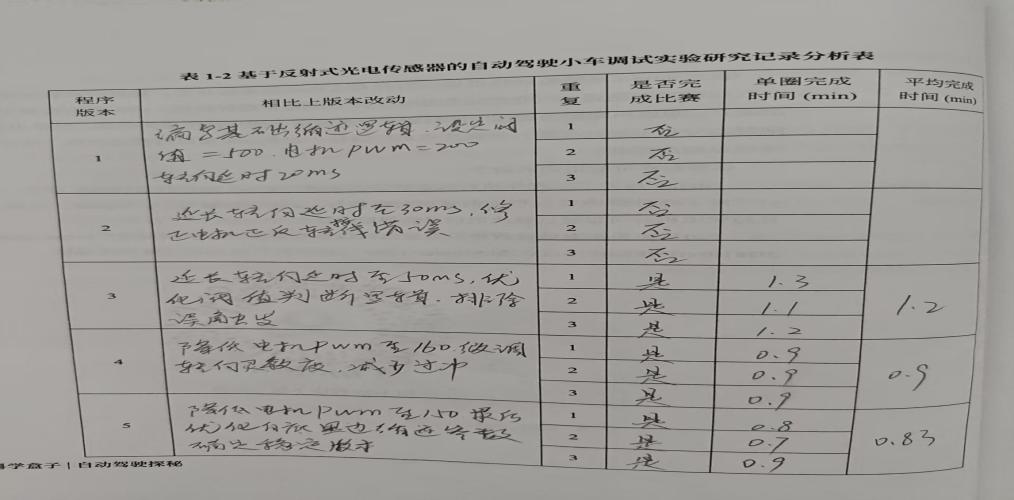 表 1-2 基于反射式光电传感器的自动驾驶小车调试实验研究记录分析表
程序版本 相比上版本改动 重复 是否完成比赛 单圈完成时间 (min) 平均完成时间 (min)
1 编写基础循迹逻辑，设定阈值=500，电机PWM=200 转向延时20ms
1 否
2 否
3 否
2 延长转向延时至30ms，修正电机正反转错误
1 否
2 否
3 否
3 延长转向延时至50ms，优化阈值判断逻辑，排除误触发 1.2
1 是 1.3
2 是 1.1
3 是 1.2
4 降低电机PWM至160，微调转向灵敏度，减少过冲 0.9
1 是 0.9
2 是 0.9
3 是 0.9
5 降低电机PWM至150 最后优化 参数 确定稳定版本 0.83
1 是 0.8
2 是 0.7
3 是 0.9
学盒子 | 自动驾驶探秘